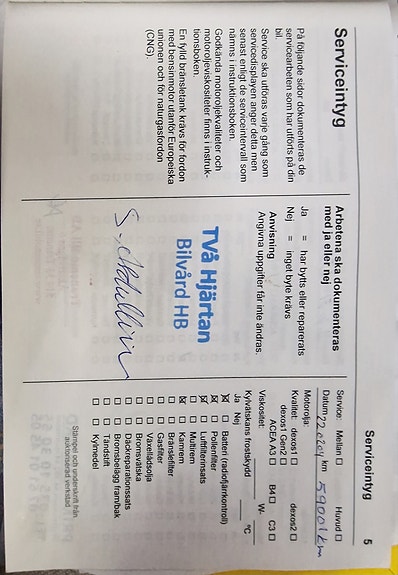 Serviceintyg
På följande sidor dokumenteras de
servicearbeten som har utförts på din
bil.
Service ska utföras varje gång som
servicedisplayen anger detta men
senast enligt de serviceintervall som
nämns i instruktionsboken.
Godkända motoroljekvaliteter och
motoroljeviskositeter finns i instruk-
tionsboken.
En fylld bränsletank krävs för fordon
med bensinmotor utanför Europeiska
unionen och för naturgasfordon
(CNG).
Arbetena ska dokumenteras
med ja eller nej
Ja = har bytts eller reparerats
Nej = inget byte krävs
Anvisning
Angivna uppgifter får inte ändras.
Två Hjärtan
Bilvård HB
Serviceintyg 5
Service: Mellan ☐ Huvud ☐
Datum 220204 km 59001 km
Motorolja:
Kvalitet: dexos1 ☐ dexos2 ☐
dexos1 Gen2 ☐
ACEA A3 ☐ B4 ☐ C3 ☐
Viskositet: W-
Kylvätskans frostskydd °C
Ja Nej
Batteri (radiofjärrkontroll)
Pollenfilter
Luftfilterinsats
Multirem
Kamrem
Bränslefilter
Gasfilter
Växellådsolja
Bromsvätska
Däckreparationssats
Bromsbelägg fram/bak
Tändstift
Kylmedel
Stämpel och underskrift från
auktoriserad verkstad